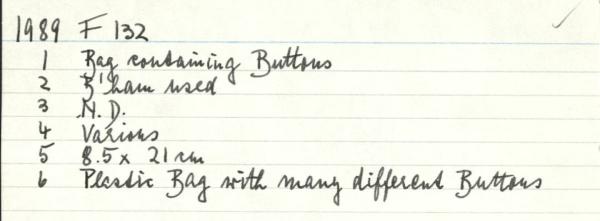 1989 F 132
1 Bag containing Buttons
2 B'ham used
3 N.D.
4 Various
5 8.5 x 21 cm
6 Plastic Bag with many different Buttons